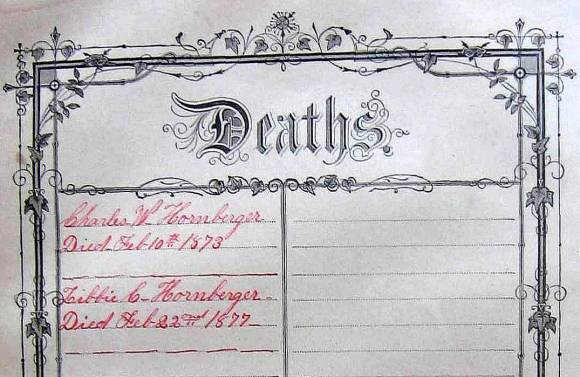 Deaths.
Charles W Hornberger
Died Feb 10th 1873
Libbie C. Hornberger.
Died Feb 22nd 1877